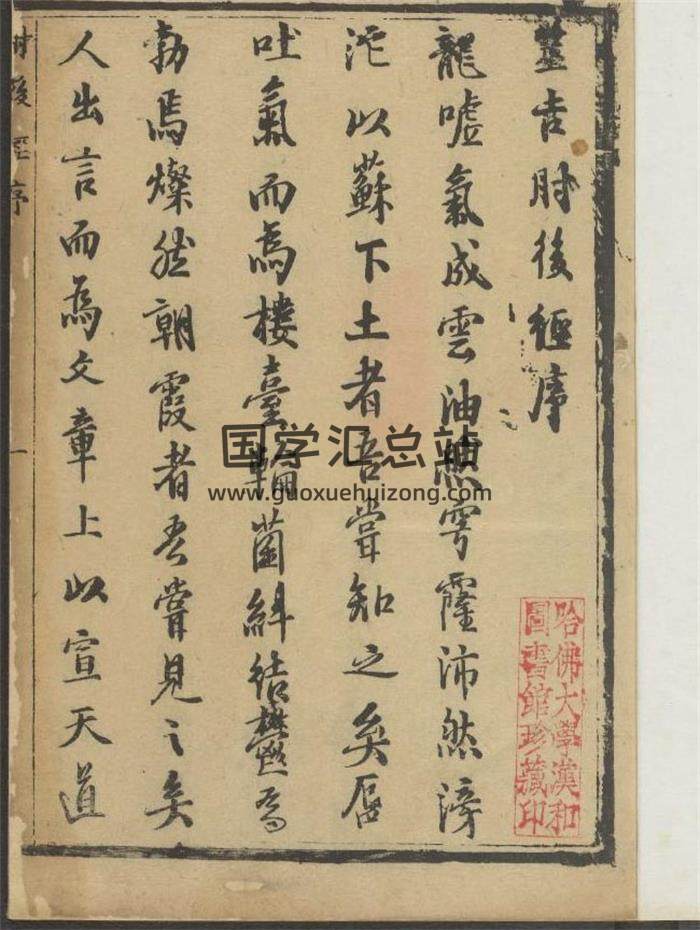 筮吉肘後經序
龍嘘氣成雲油然雱霳沛然滂
沱以蘇下土者吾嘗知之矣蜃
吐氣而為樓臺輪菌紏結鬱焉
勃焉燦然朝霞者吾嘗見之矣
人出言而為文章上以宣天道
肘後經序
一
国学汇总站
www.guoxuehuizong.com
哈佛大學漢和
圖書館珍藏印